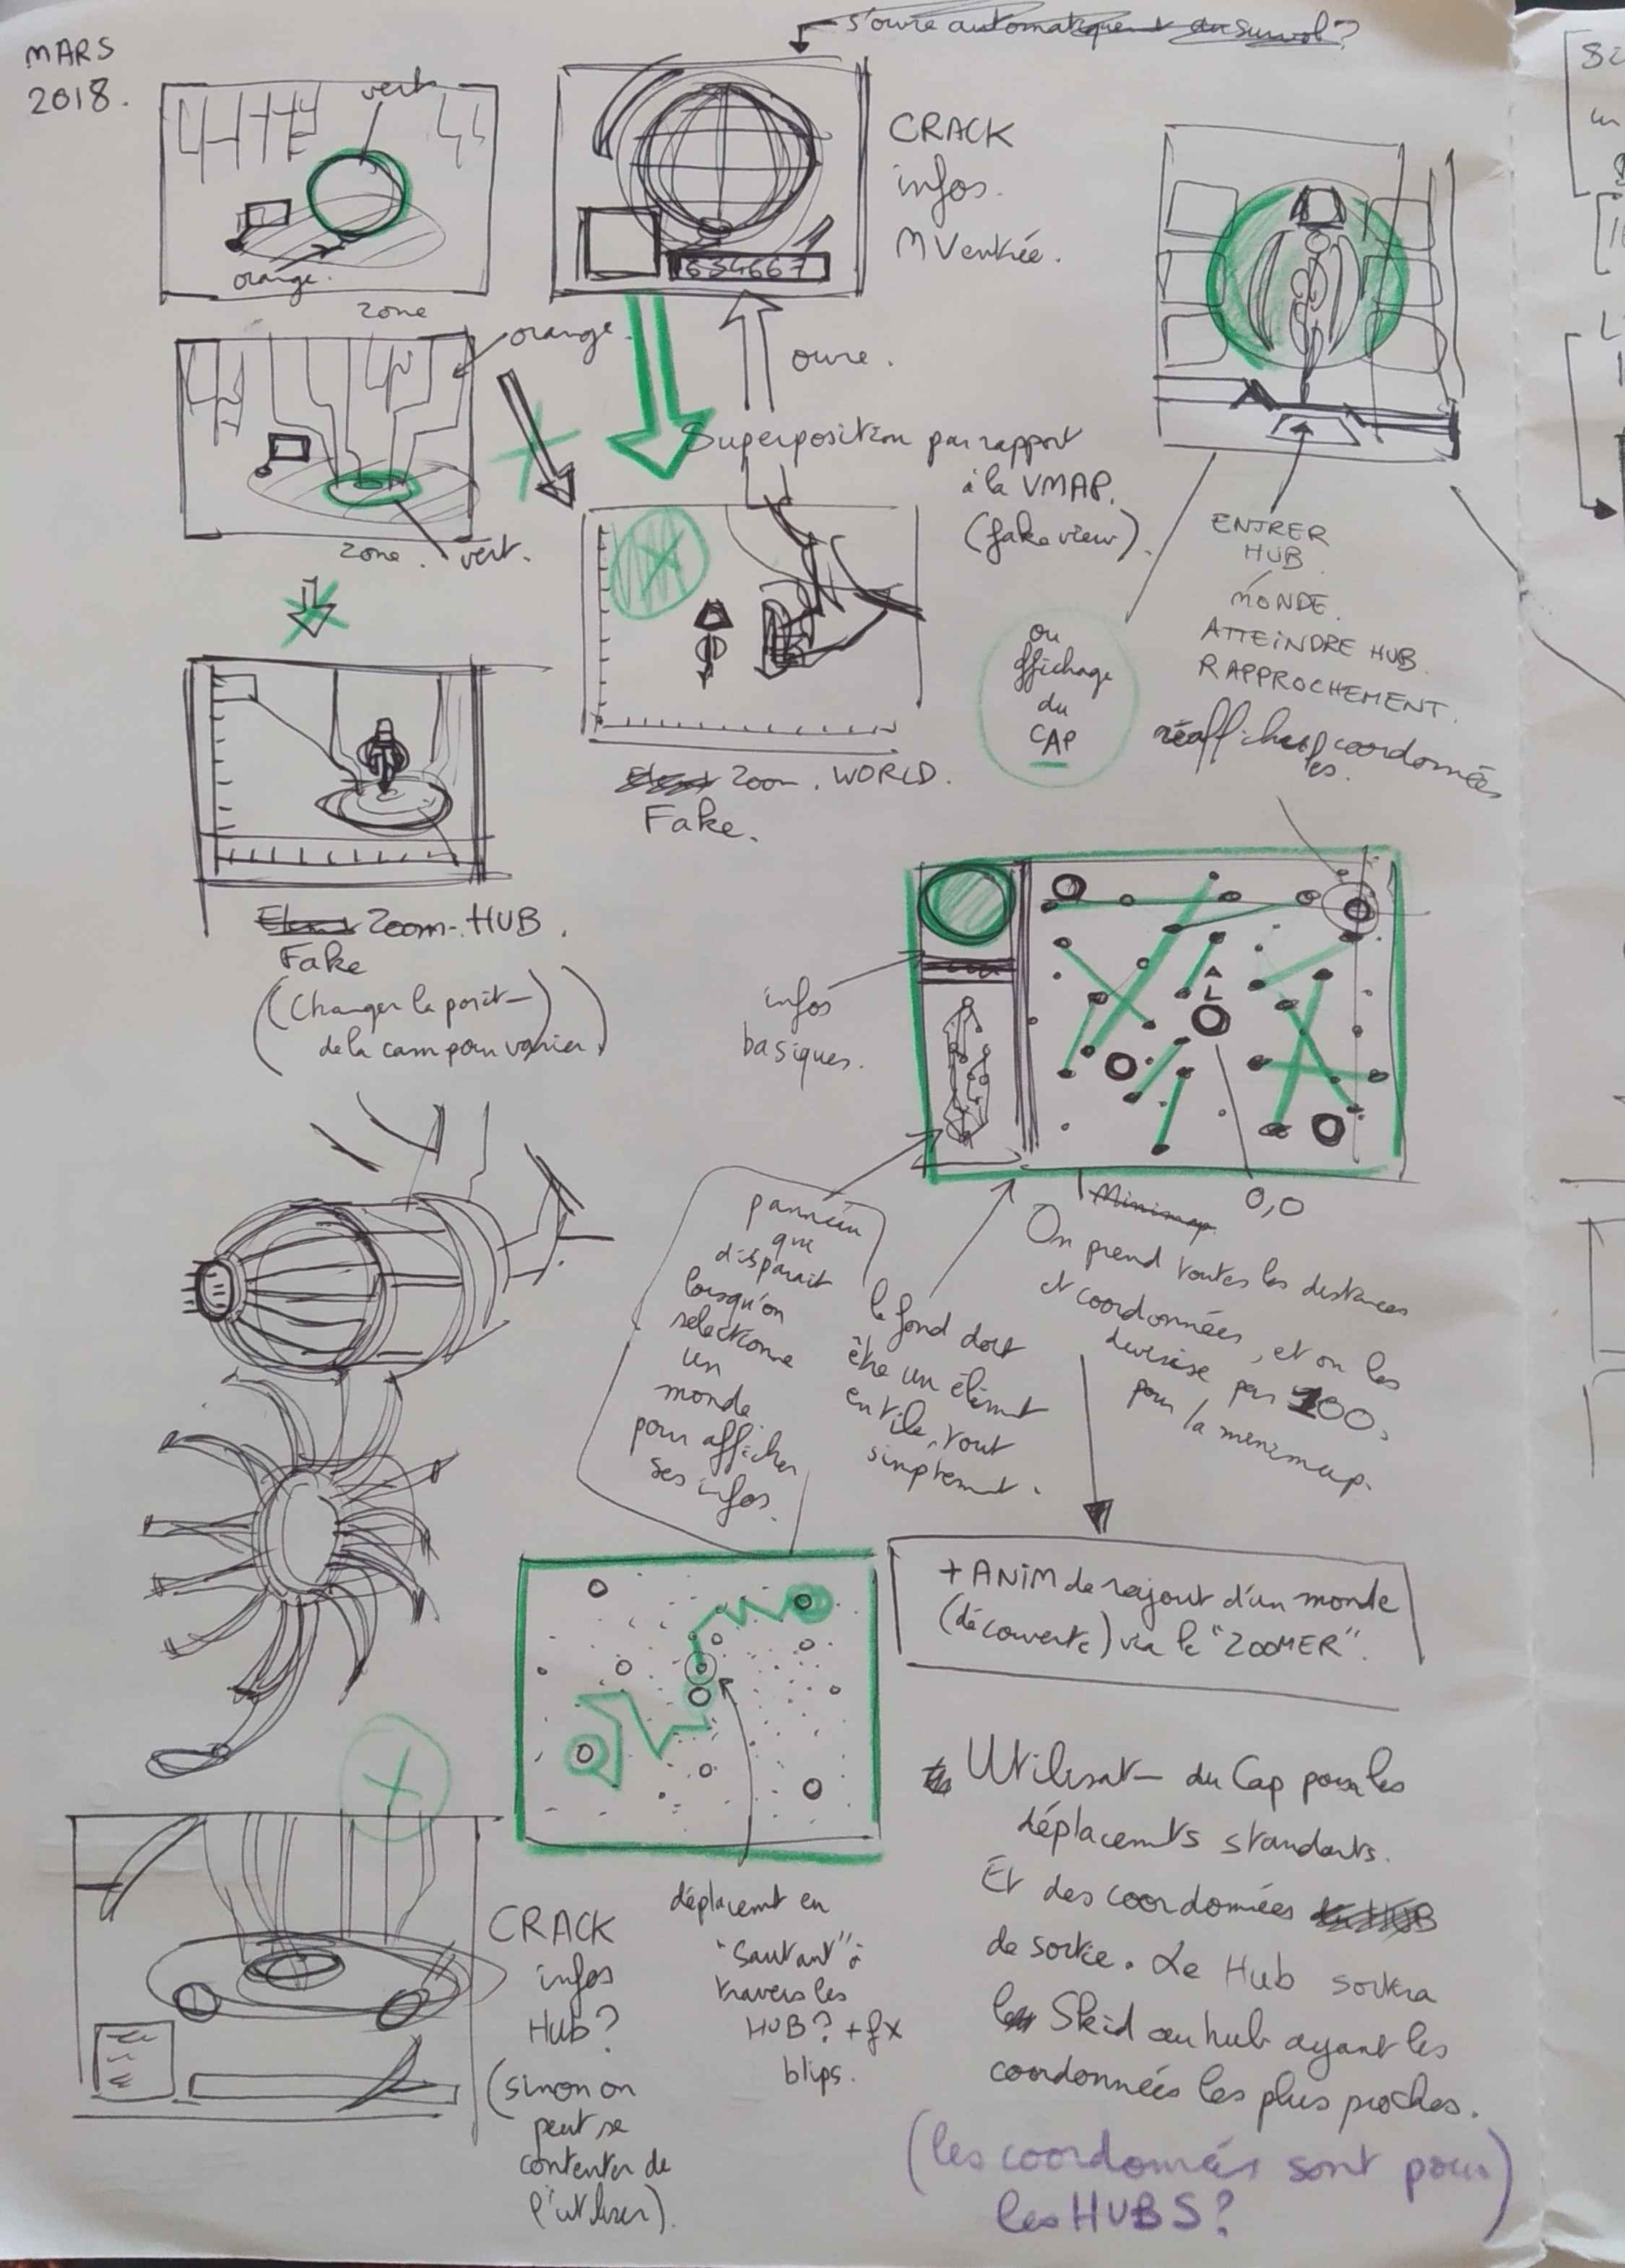 MARS
2018.
s'ouvre automatiquement au survol ?
vert
orange.
zone
CRACK
infos.
MV entrée.
634667
orange
ouvre.
zone.
vert.
Superposition par rapport
à la VMAP.
(fake view).
ENTRER
HUB
MONDE.
ATTEINDRE HUB.
RAPPROCHEMENT.
réafficher les coordonnées
ou
affichage
du
CAP
Zoom. WORLD.
Fake.
Zoom-HUB.
Fake
(Changer la posit-
de la cam pour varier)
infos
basiques.
Minimap
0,0
On prend toutes les distances
et coordonnées, et on les
divise par 100,
pour la minimap.
panneau
qui
disparait
lorsqu'on
selectionne
un
monde
pour afficher
ses infos.
le fond doit
être un élémt
en tile, tout
simplemnt.
+ ANIM de rajout d'un monde
(découverte) via le "ZOOMER".
déplacemt en
"Sautant" à
travers les
HUB? + fx
blips.
CRACK
infos
Hub?
(sinon on
peut se
contenter de
l'utiliser).
Utilisat- du Cap pour les
déplacemts standarts.
Et des coordonnées du HUB
de sortie. Le Hub sortira
le Skid au hub ayant les
coordonnées les plus proches.
(les coordonnées sont pour
les HUBS?)